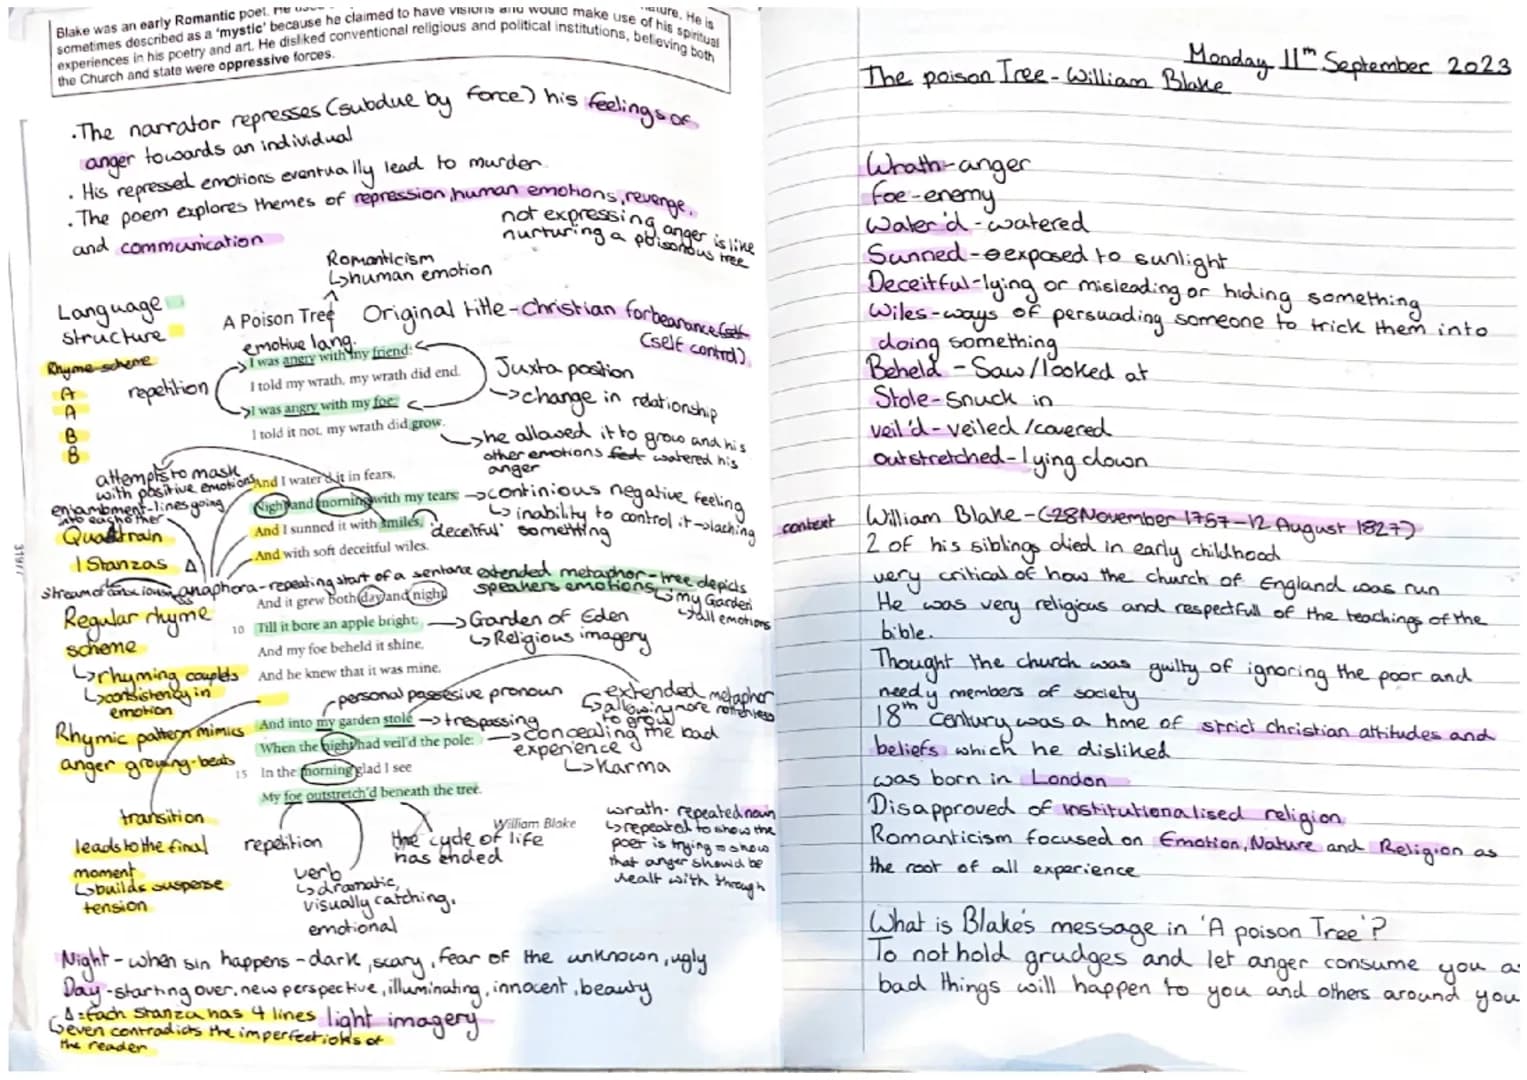 Blake was an early Romantic poet. He
sometimes described as a 'mystic' because he claimed to have visions and would make use of his spiritual
experiences in his poetry and art. He disliked conventional religious and political institutions, believing both
the Church and state were oppressive forces.
nature. He is
.The narrator represses (subdue by force) his feelings of
anger towards an individual
. His repressed emotions eventually lead to murder.
. The poem explores themes of repression, human emotions, revenge,
and communication
not expressing anger is like
nurturing a poisonous tree
Romanticism
↳human emotion
Language
Structure
A Poison Tree
Original title - Christian forbearance (self
(self control)
emotive lang.
Rhyme scheme
A
A
B
B
repetition
I was angry with my friend:
I told my wrath, my wrath did end.
I was angry with my foe:
I told it not, my wrath did grow.
Juxta position
→change in relationship
↳he allowed it to grow and his
other emotions fed watered his
anger
attempts to mask
with positive emotions
enjambment-lines going
into eachother
Quatrain
And I water'd it in fears,
Night and morning with my tears:
And I sunned it with smiles,
And with soft deceitful wiles.
→continious negative feeling
↳ inability to control it → lashing
deceitful something
1 Stanzas Δ
anaphora - repeating start of a sentance
extended metaphor - tree depicts
speakers emotions
↳my Garden
↳all emotions
Regular rhyme
scheme
↳rhyming couplets
↳consistency in
emotion
And it grew both day and night
10 Till it bore an apple bright;
And my foe beheld it shine,
And he knew that it was mine.
→Garden of Eden
↳Religious imagery
personal possesive pronoun
extended metaphor
↳allowing more
to grow
Rhymic pattern mimics
anger growing-beats
And into my garden stole
When the night had veil'd the pole:
15 In the morning glad I see
My foe outstretch'd beneath the tree.
→trespassing
→concealing the bad
experience
↳Karma
transition
leads to the final
moment
↳builds suspense
tension
repetition
verb
↳dramatic,
visually catching,
emotional
William Blake
the cycle of life
has ended
wrath- repeated noun
↳repeated to show the
poet is trying to show
that anger should be
dealt with through
Night - when sin happens - dark, scary, fear of the unknown, ugly
Day - starting over, new perspective, illuminating, innocent, beauty
Δ = Each Stanza has 4 lines
light imagery
↳even contradicts the imperfections of
the reader
31977
Monday 11th September 2023
The poison Tree - William Blake
Wrath - anger
foe - enemy
Water'd - watered
Sunned - exposed to sunlight
Deceitful - lying or misleading or hiding something
Wiles - ways of persuading someone to trick them into
doing something
Beheld - Saw/looked at
Stole - Snuck in
veil'd - veiled /covered
outstretched - lying down
context
William Blake - (28 November 1757 - 12 August 1827)
2 of his siblings died in early childhood
very critical of how the church of England was run
He was very religious and respectfull of the teachings of the
bible.
Thought the church was guilty of ignoring the poor and
needy members of society
18th Century was a time of strict christian attitudes and
beliefs which he disliked
was born in London
Disapproved of institutionalised religion
Romanticism focused on Emotion, Nature and Religion as
the root of all experience
What is Blake's message in 'A poison Tree'?
To not hold grudges and let anger consume you as
bad things will happen to you and others around you